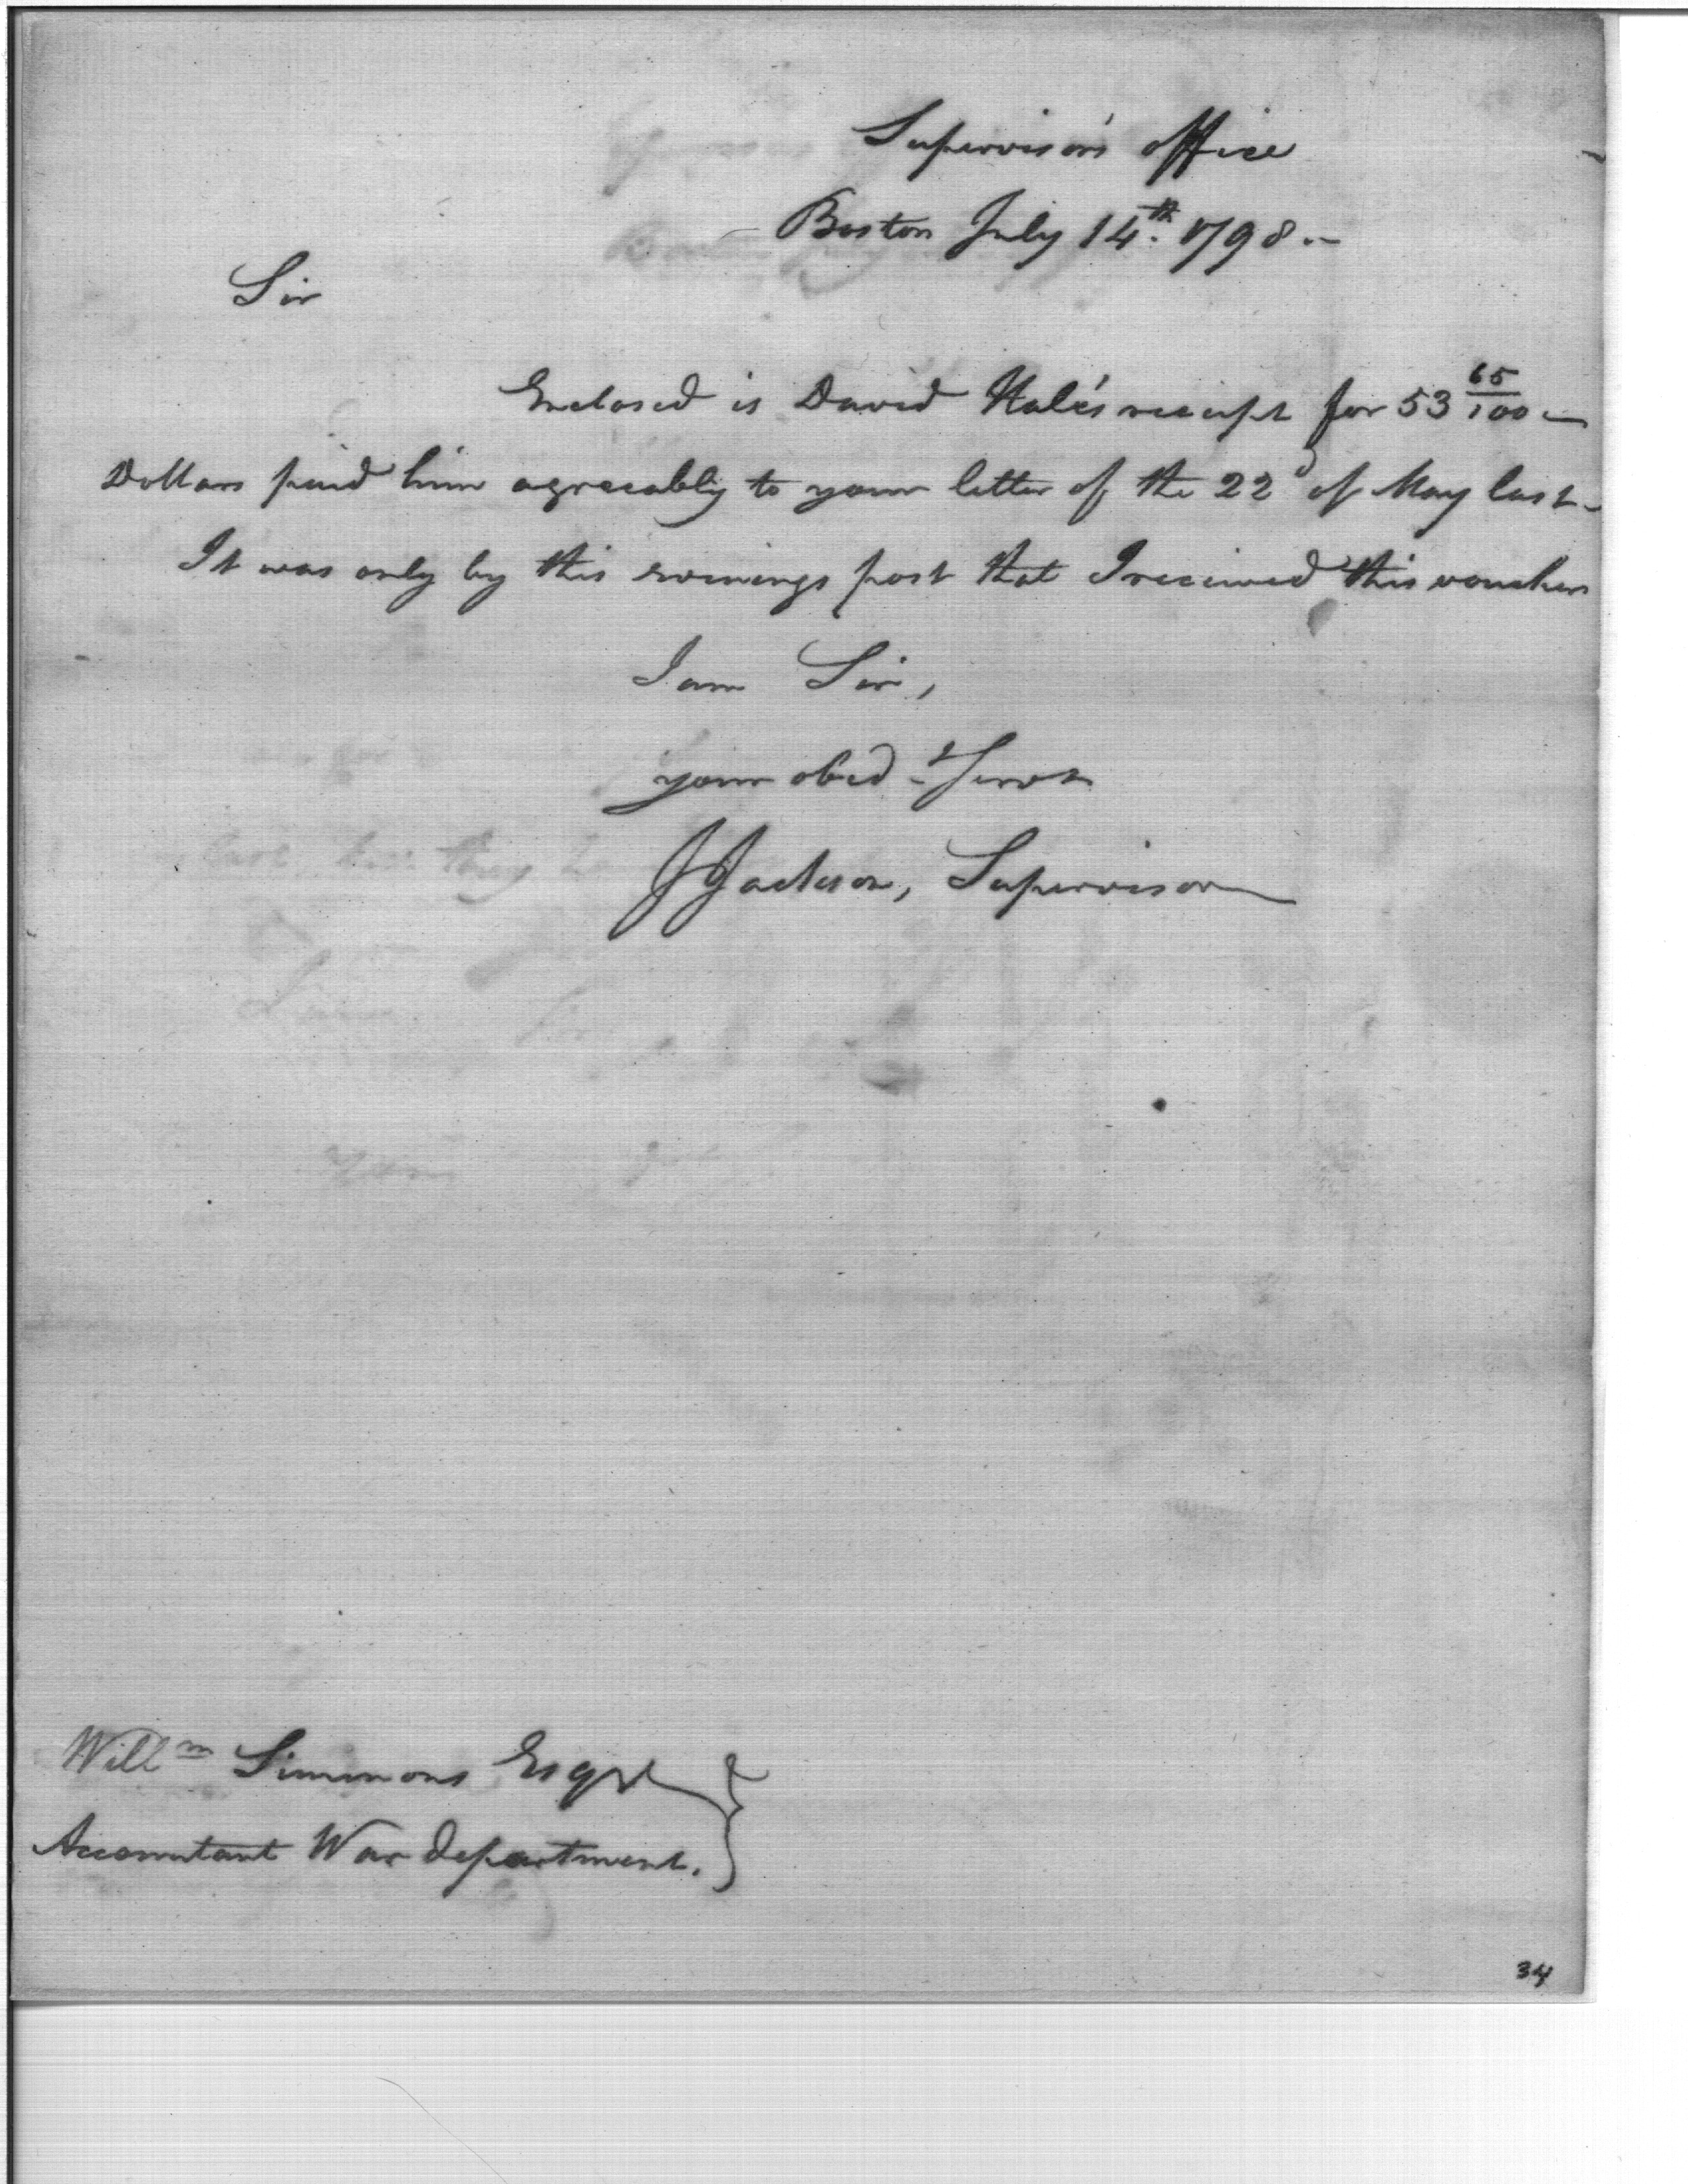 Supervisor's office
Boston July 14th. 1798.-
Sir
Enclosed is David Hale's receipt for 53 65/100
Dollars paid him agreeably to your letter of the 22d of May last-
It was only by this evenings post that I received this voucher
I am Sir,
your obedt Servt
J Jackson, Supervisor
Willm Simmons Esqr
Accountant War department.
34